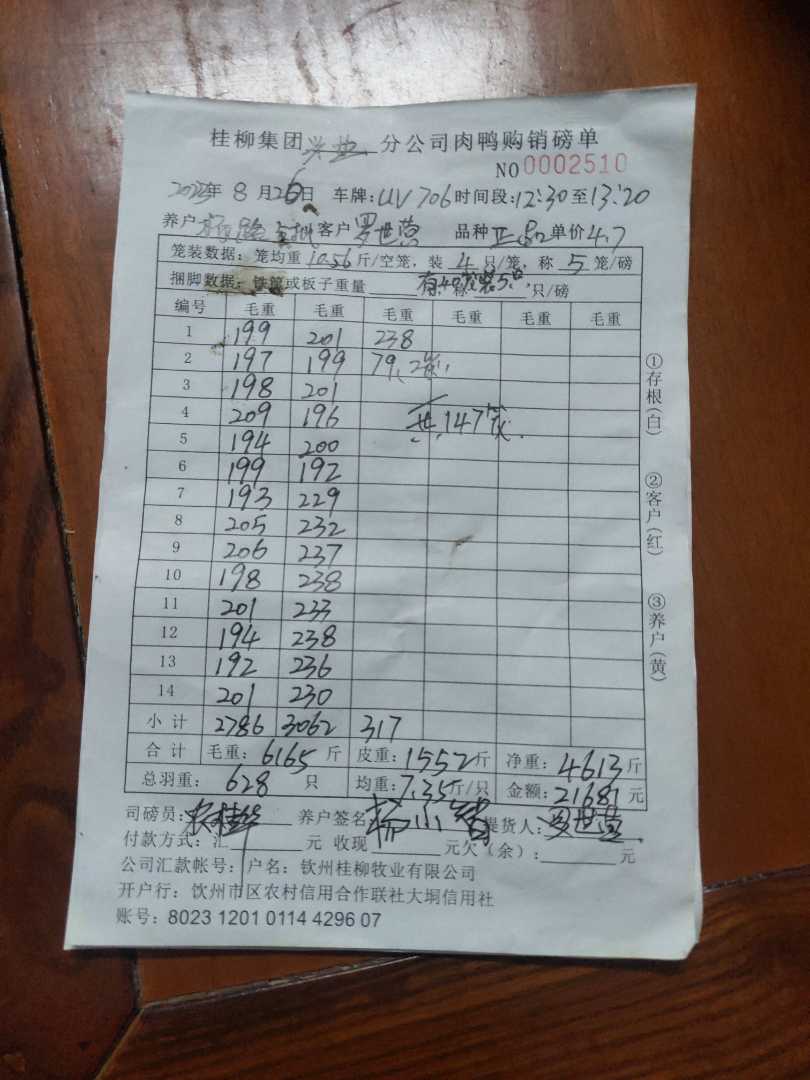 桂柳集团兴业分公司肉鸭购销磅单
NO 0002510
2023年 8月26日 车牌:UV706 时间段:12:30至13:20
养户 客户罗世营 品种正品 单价4.7
笼装数据:笼均重10.56斤/空笼,装4只/笼,称5笼/磅
捆脚数据:铁筐或板子重量 有40笼装5只, 称 只/磅
编号 毛重 毛重 毛重 毛重 毛重 毛重
1 199 201 238
2 197 199 79(2笼)
3 198 201
4 209 196 共147笼.
5 194 200
6 199 192
7 193 229
8 205 232
9 206 237
10 198 238
11 201 233
12 194 238
13 192 236
14 201 230
小计 2786 3062 317
合计 毛重:6165斤 皮重:1552斤 净重:4613斤
总羽重:628只 均重:7.35斤/只 金额:21681元
司磅员: 养户签名 杨小 提货人:罗世营
付款方式:汇 元 收现 元欠(余): 元
公司汇款帐号:户名:钦州桂柳牧业有限公司
开户行:钦州市区农村信用合作联社大垌信用社
账号:8023 1201 0114 4296 07
①存根(白)
②客户(红)
③养户(黄)